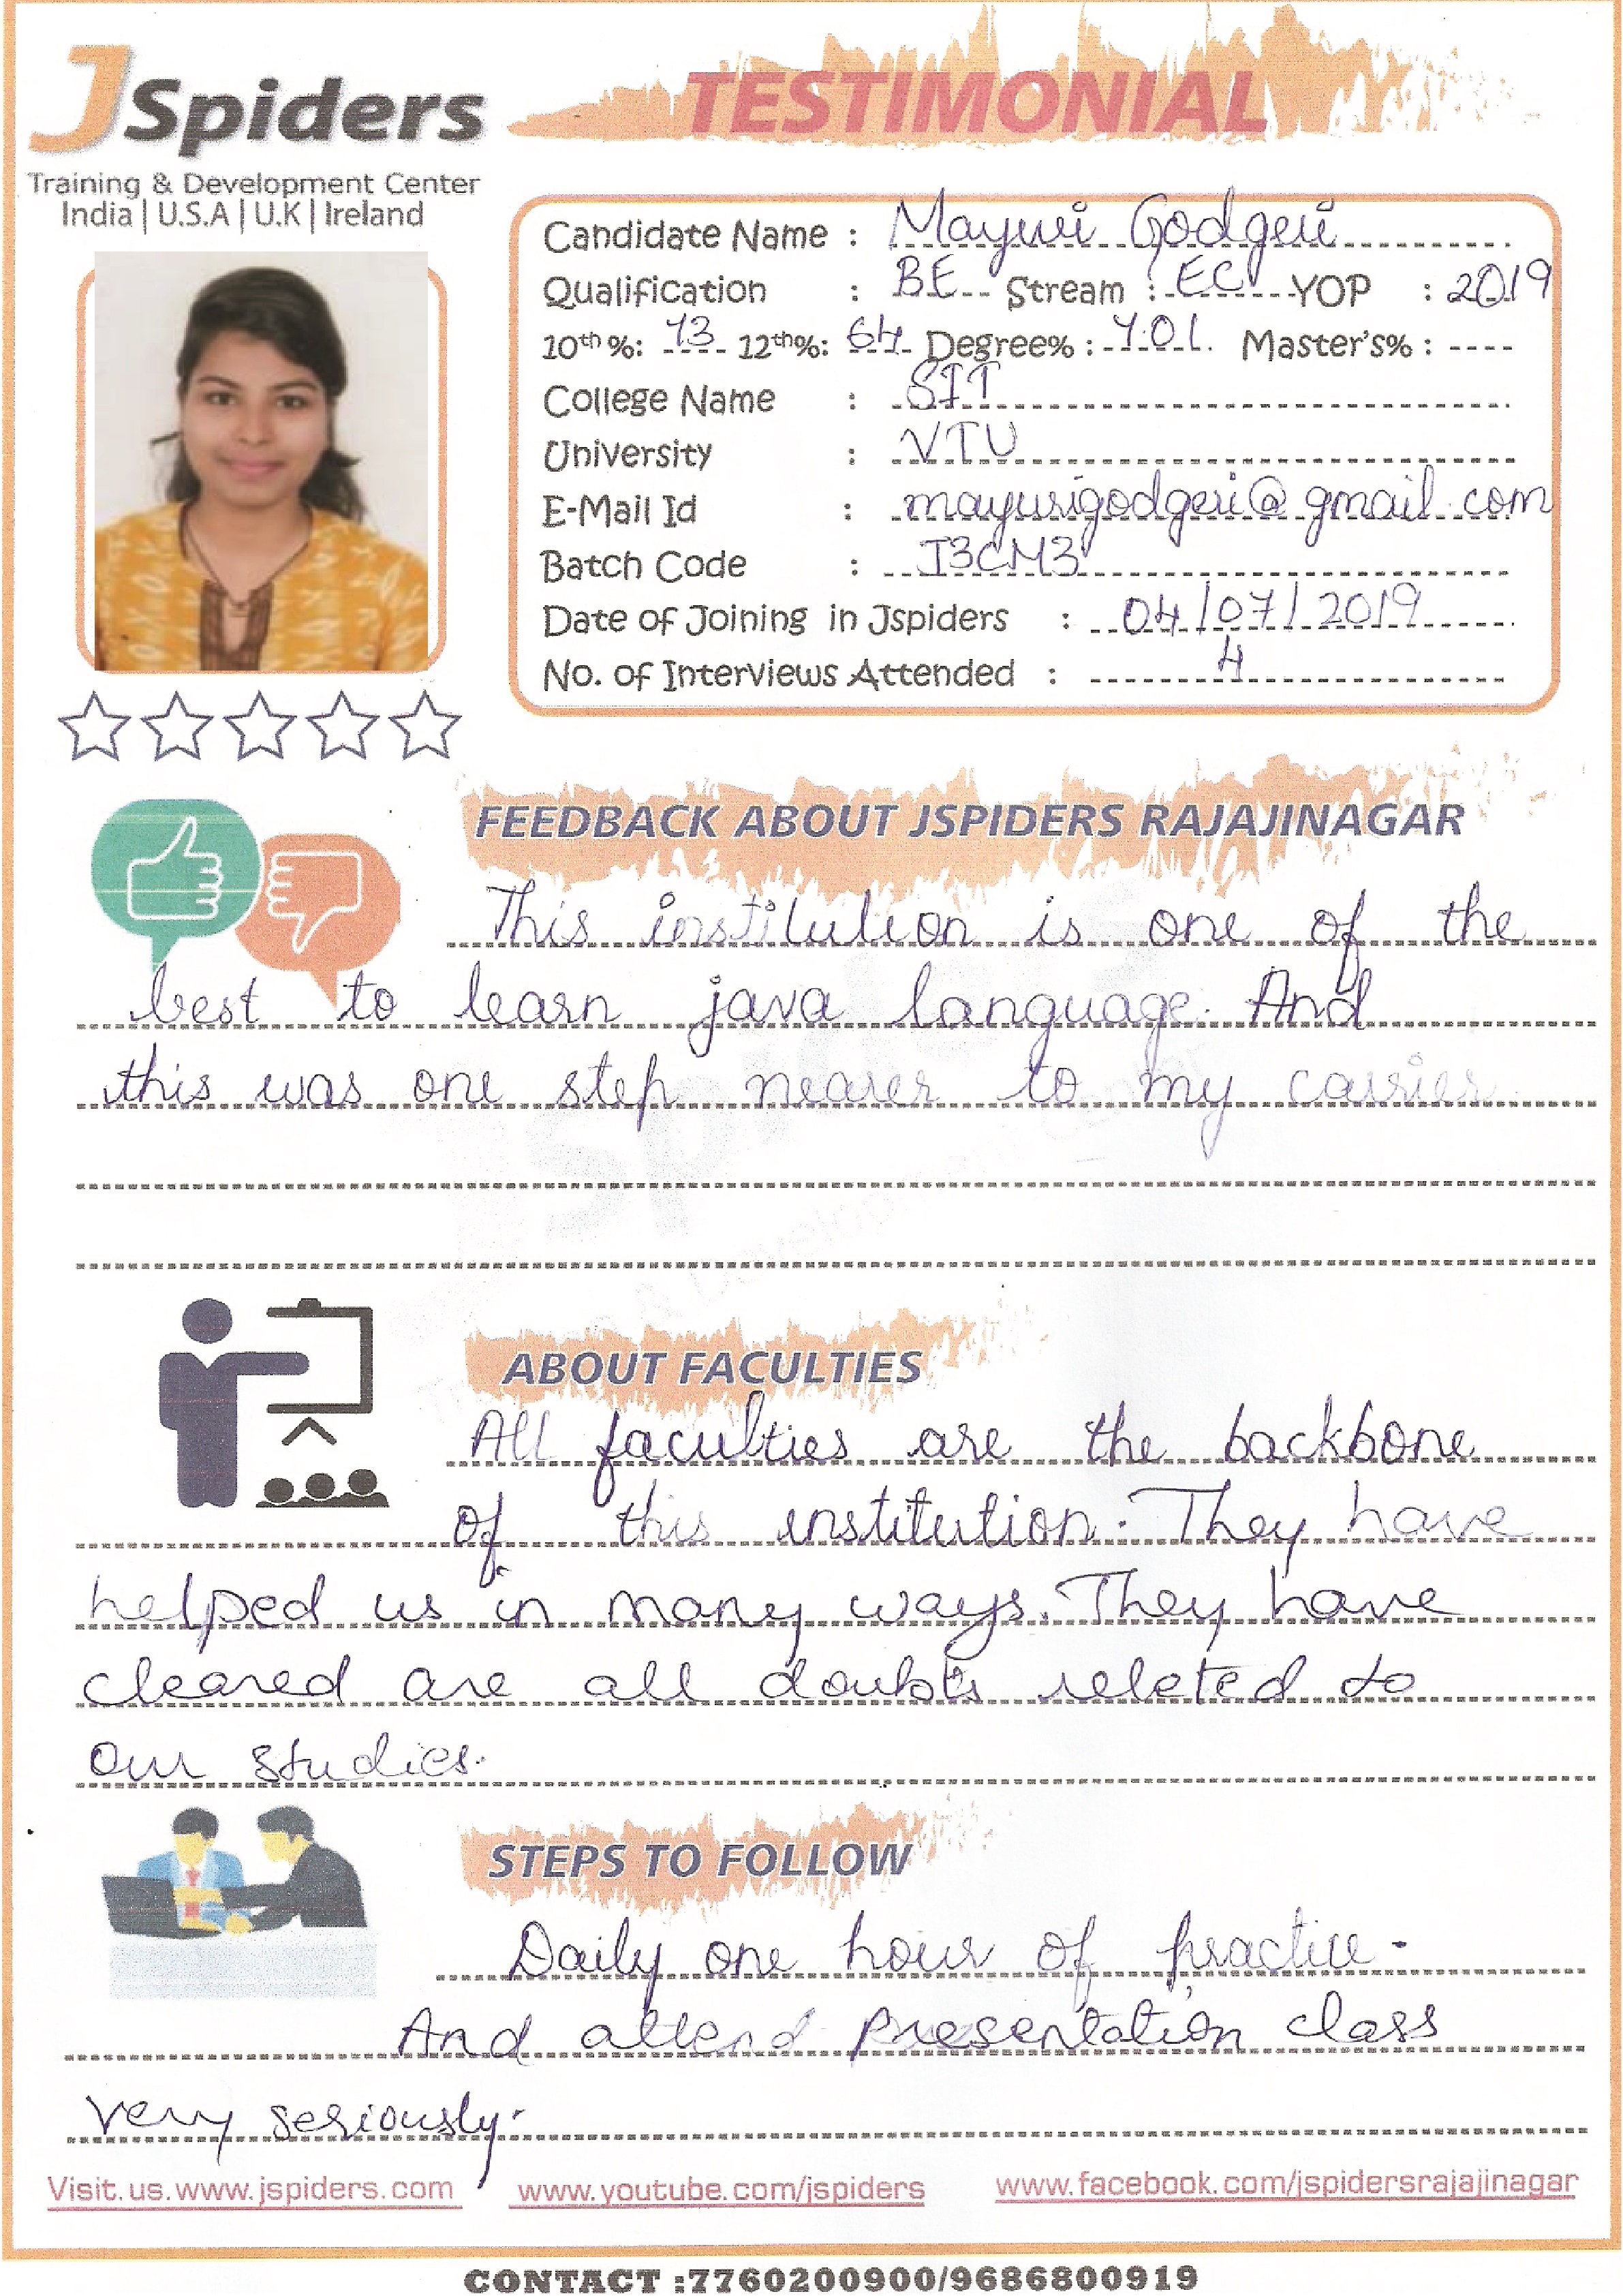 JSpiders
TESTIMONIAL
Training & Development Center
India | U.S.A | U.K | Ireland
Candidate Name : Mayuri Godgeri
Qualification : BE Stream : EC YOP : 2019
10th %: 73 12th%: 64 Degree% : Master's% :
College Name : SIT
University : VTU
E-Mail Id : mayurigodgeri@gmail.com
Batch Code : J3CM3
Date of Joining in Jspiders : 04/07/2019
No. of Interviews Attended : 4
FEEDBACK ABOUT JSPIDERS RAJAJINAGAR
This institution is one of the
best to learn java language. And
this was one step nearer to my carrier
ABOUT FACULTIES
All faculties are the backbone
of this institution. They have
helped us in many ways. They have
cleared are all doubts releted to
our studies.
STEPS TO FOLLOW
Daily one hour of practice.
And attend presentation class
very seriously.
Visit.us.www.jspiders.com www.youtube.com/jspiders www.facebook.com/jspidersrajajinagar
CONTACT :7760200900/9686800919